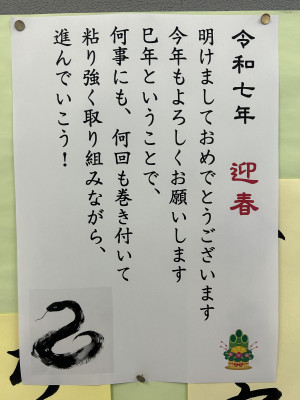 令和七年 迎春
明けましておめでとうございます
今年もよろしくお願いします
巳年ということで、
何事にも、何回も巻き付いて
粘り強く取り組みながら、
進んでいこう！